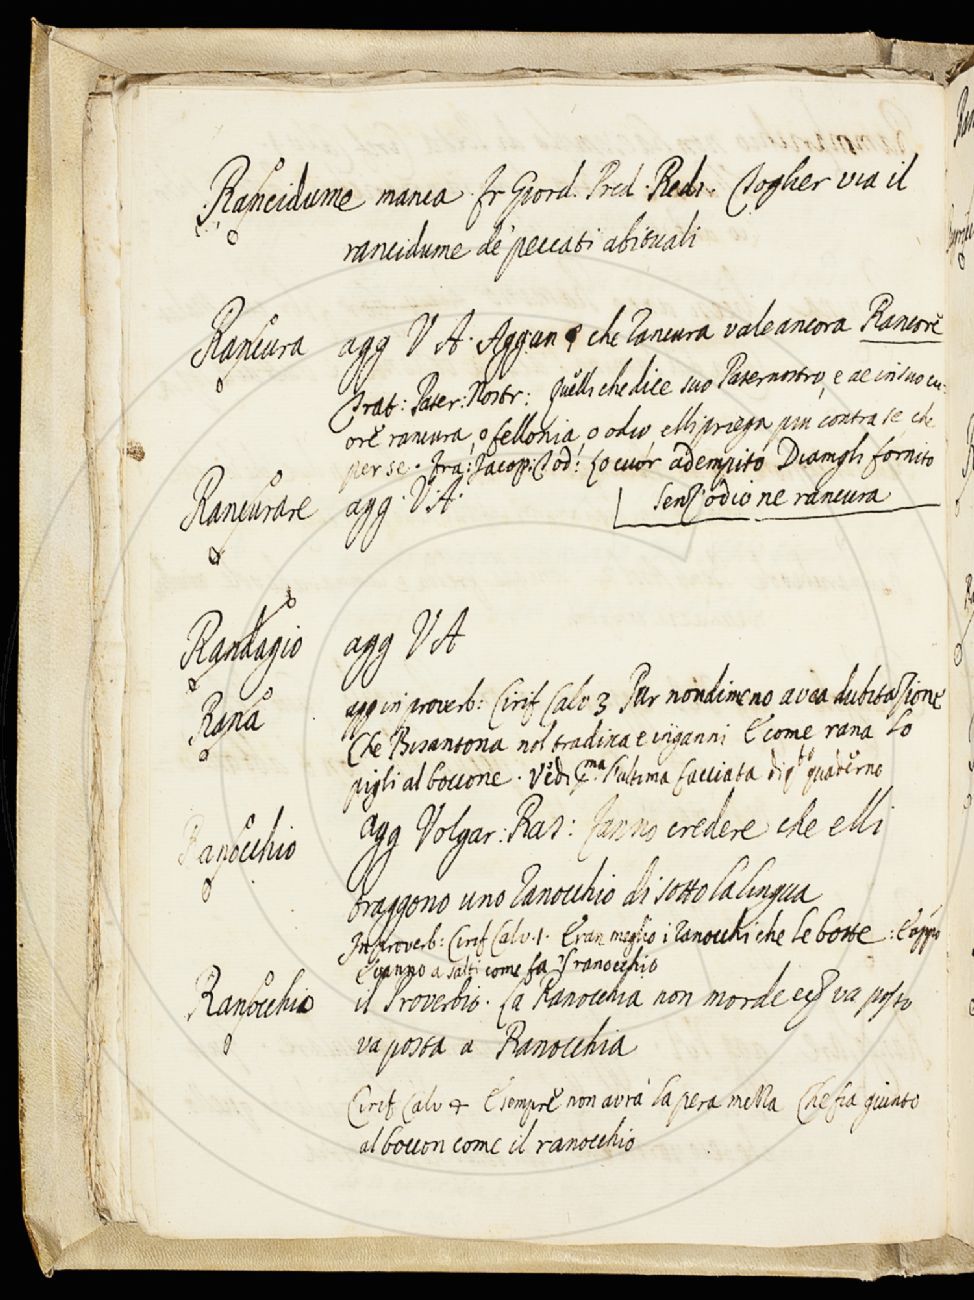 Rancidume manca. fr Giord. Pred. Redi. Toglier via il
rancidume de' peccati abituali
Rancura agg V A. Aggun che rancura vale ancora Rancore
Trat: Pater: Nostr: quelli che dice suo Paternostro, e ae in suo cu-
ore rancura, o fellonia, o odio, elli priega piu contra se che
per se. Fra: Jacop: Tod: Lo cuor adempito Diamgli fornito
Senz' odio ne rancura
Rancurare agg. V. A.
Randagio agg V A
Rana agg in proverb: Cirif Calv 3 Pur nondimeno avea dubitazione
Che Bisantona nol tradisca e inganni E come rana lo
pigli al boccone. Vedi l'ultima facciata di qto quaderno
Ranocchio agg Volgar: Ras: fanno credere che elli
traggono uno ranocchio di sotto la lingua
In proverb: Cirif Calv. 1. E ran meglio i ranocchi che le botte:
E vanno a salti come fa il ranocchio
Ranocchia il Proverbio. La Ranocchia non morde ec va posto
va posta a Ranocchia
Cirif Calv 4 E sempre non avrà la pera mezza Che fia giunto
al boccon come il ranocchio